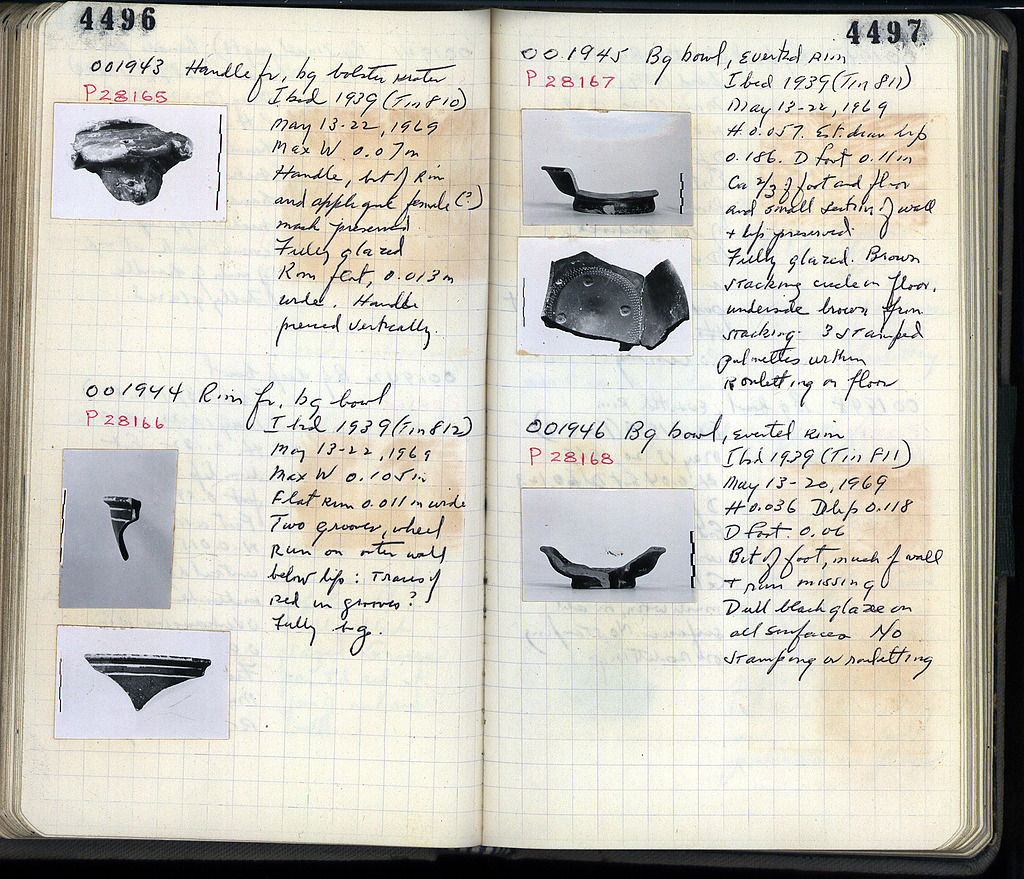 4496
001943 Handle fr. bg bolster krater
P 28165
I bid 1939 (Tin 810)
May 13-22, 1969
Max W. 0.07m
Handle, bit of Rim
and applique female (?)
mask preserved
Fully glazed
Rim flat, 0.013m
wide. Handle
pierced vertically.
001944 Rim fr. bg bowl
P 28166
I bid 1939 (Tin 812)
May 13-22, 1969
Max W 0.105m
Flat Rim 0.011m wide
Two grooves, wheel
Run on outer wall
below lip: Traces of
red in grooves?
Fully bg.
4497
001945 Bg bowl, everted Rim
P 28167
I bid 1939 (Tin 811)
May 13-22, 1969
H 0.057. Est. diam lip
0.186. D foot 0.11m
Ca 2/3 of foot and floor
and small section of wall
+ lip preserved.
Fully glazed. Brown
stacking circle on floor,
underside brown from
stacking. 3 stamped
palmettes within
rouletting on floor
001946 Bg bowl, everted Rim
P 28168
Ibid 1939 (Tin 811)
May 13-20, 1969
H 0.036 D lip 0.118
D foot. 0.06
Bit of foot, much of wall
+ rim missing
Dull black glaze on
all surfaces No
stamping or rouletting